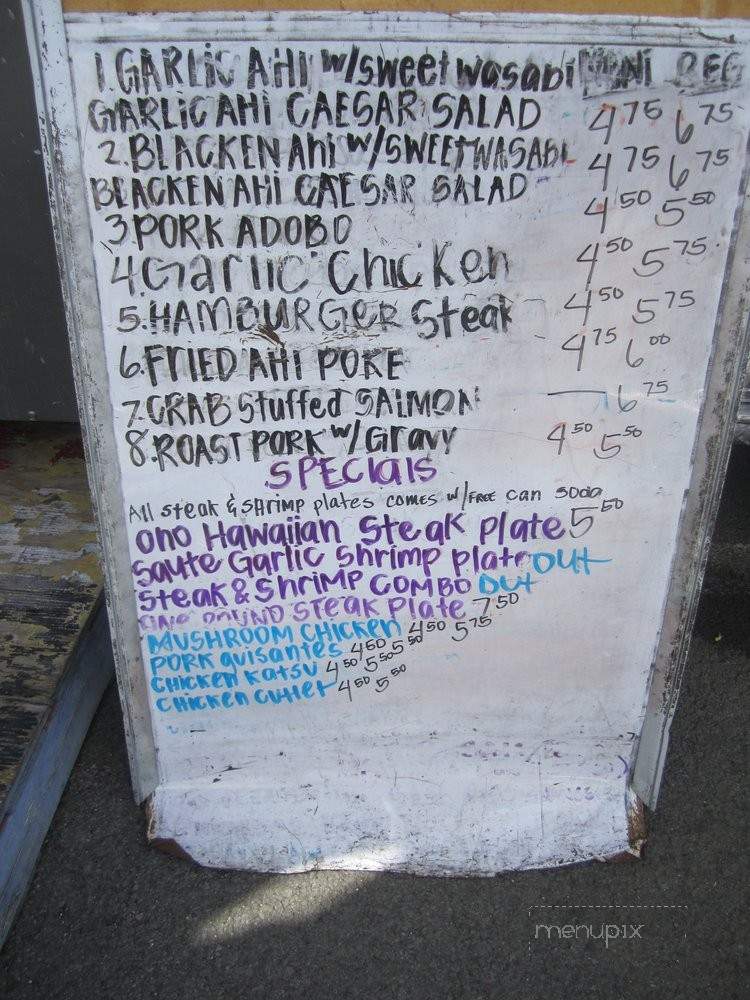 1. GARLIC AHI w/sweet wasabi MINI REG
GARLIC AHI CAESAR SALAD 4 75 6 75
2. BLACKEN AHI w/SWEET WASABI 4 75 6 75
BLACKEN AHI CAESAR SALAD
3. PORK ADOBO 4 50 5 50
4. Garlic Chicken 4 50 5 75
5. HAMBURGER Steak 4 50 5 75
6. FRIED AHI POKE 4 75 6 00
7. CRAB Stuffed SALMON — 6 75
8. ROAST PORK w/ Gravy 4 50 5 50
SPECIALS
All steak & SHRIMP plates comes w/FREE can soda
ono Hawaiian Steak plate 5 50
Saute Garlic Shrimp plate OUT
Steak & Shrimp COMBO OUT
ONE POUND STEAK Plate 7 50
MUSHROOM CHICKEN 4 50 5 75
PORK guisantes 4 50 5 50
CHICKEN KATSU 4 50 5 50
CHICKEN CUTLET 4 50 5 50
menupix